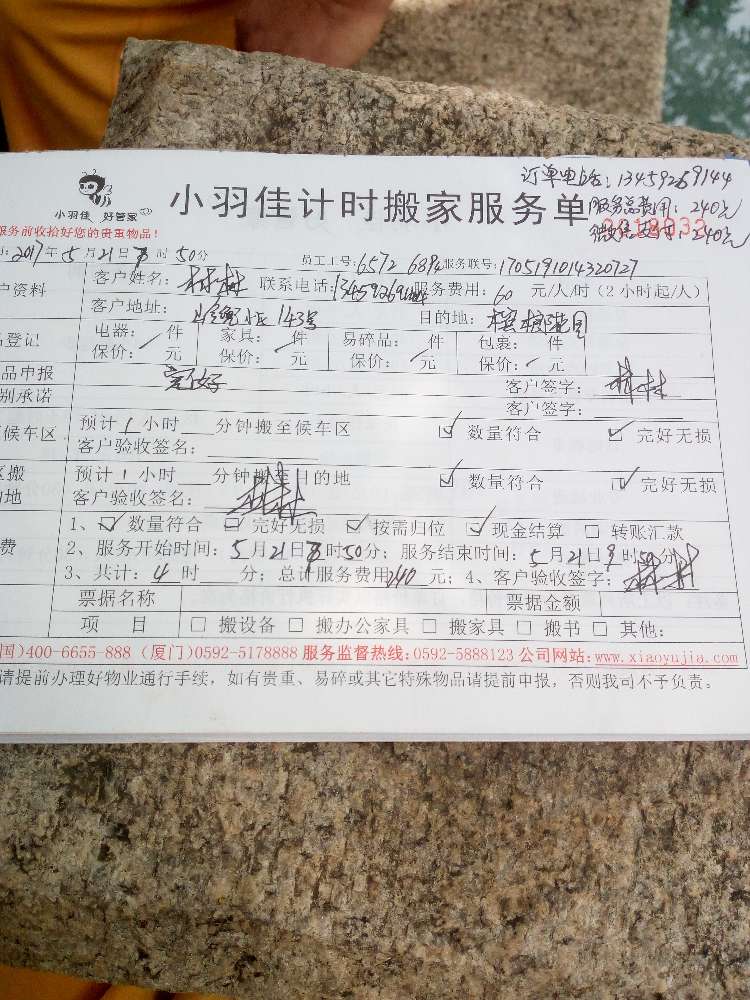 订单电话：13459269144
小羽佳 好管家
小羽佳计时搬家服务单
服务总费用：240元
服务前收拾好您的贵重物品！
微信支付：240元
2017年5月21日 时50分 员工工号：6572 6894 服务联号：1705191014320727
户资料 客户姓名：林林 联系电话：13459269144 服务费用：60 元/人/时（2小时起/人）
客户地址： 143号 目的地：
品登记 电器： 件 家具： 件 易碎品： 件 包裹： 件
保价： 元 保价： 元 保价： 元 保价： 元
品申报 完好 客户签字：林林
别承诺 客户签字：
候车区 预计1小时 分钟搬至候车区 ☑ 数量符合 ☑ 完好无损
客户验收签名：
区搬 预计1小时 分钟搬至目的地 ☑ 数量符合 ☑ 完好无损
的地 客户验收签名：林林
1、☑ 数量符合 ☑ 完好无损 ☑ 按需归位 ☑ 现金结算 □ 转账汇款
费 2、服务开始时间：5月21日 时50分；服务结束时间：5月21日9时50分
3、共计：4时 分；总计服务费用240元；4、客户验收签字：林林
票据名称 票据金额
项 目 □ 搬设备 □ 搬办公家具 □ 搬家具 □ 搬书 □ 其他：
国)400-6655-888 (厦门)0592-5178888 服务监督热线：0592-5888123 公司网站：www.xiaoyujia.com
请提前办理好物业通行手续，如有贵重、易碎或其它特殊物品请提前申报，否则我司不予负责。